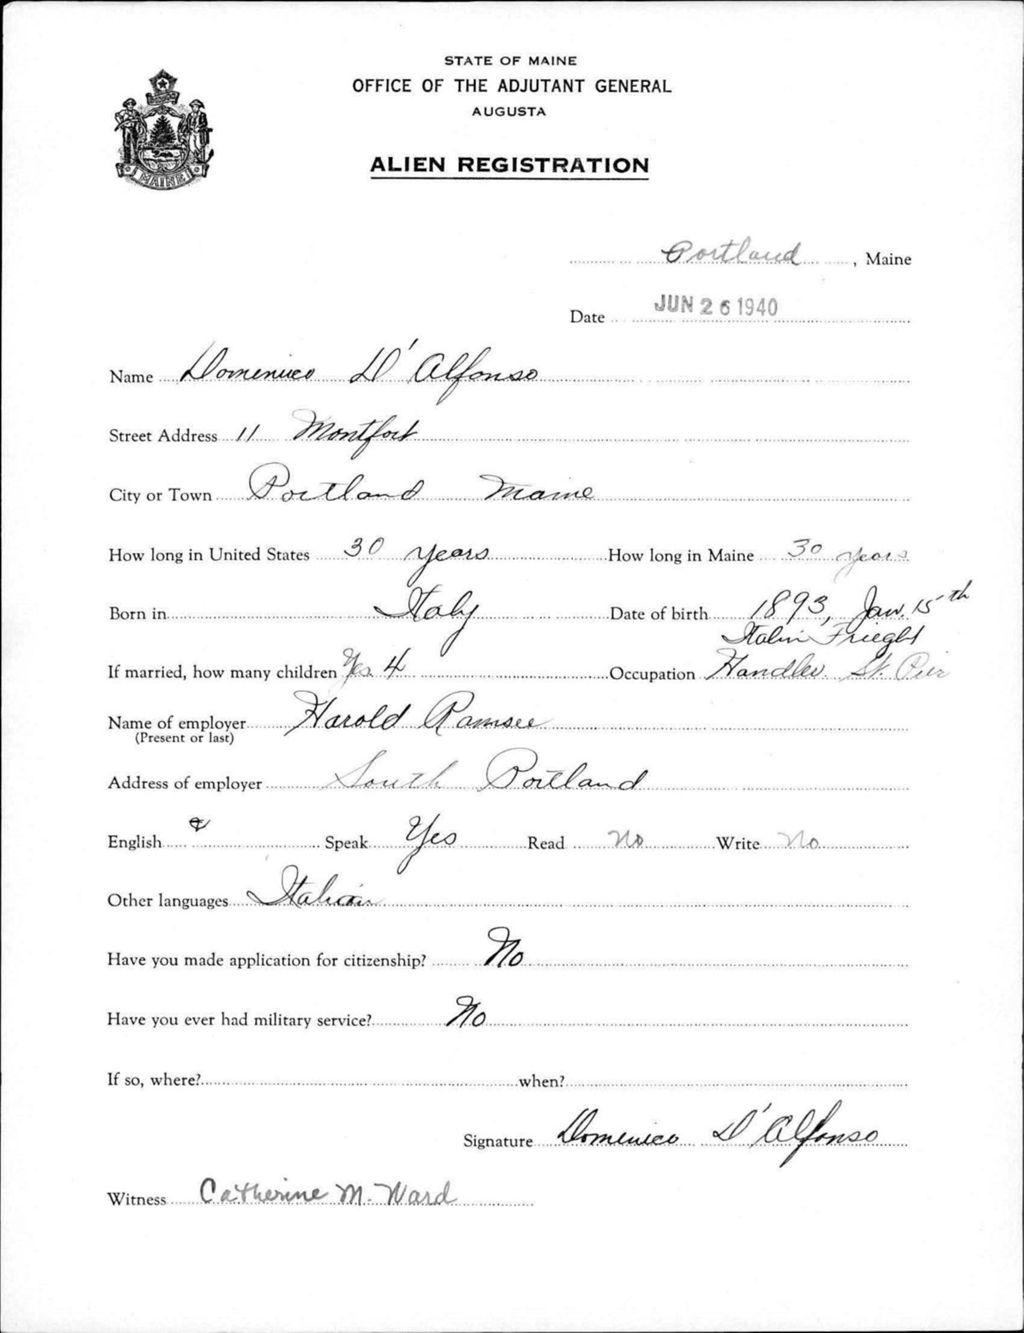 STATE OF MAINE
OFFICE OF THE ADJUTANT GENERAL
AUGUSTA
ALIEN REGISTRATION
MAINE
Portland, Maine
Date JUN 26 1940
Name Domenico D'Alfonso
Street Address 11 Montfort
City or Town Portland Maine
How long in United States 30 years How long in Maine 30 years
Born in Italy Date of birth 1893, Jan. 15th
Frieght
If married, how many children Yes 4 Occupation Handler St. Pier
Name of employer Harold Ramsee
(Present or last)
Address of employer South Portland
English Speak Yes Read No Write No
Other languages Italian
Have you made application for citizenship? No
Have you ever had military service? No
If so, where? when?
Signature Domenico D'Alfonso
Witness Catherine M. Ward